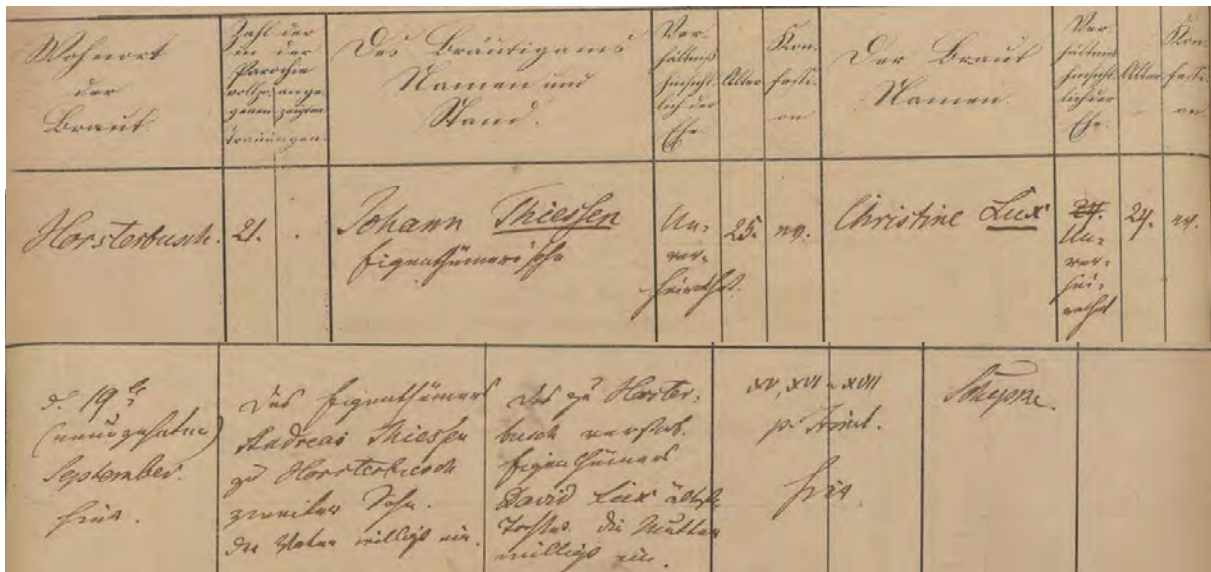 Wohnort
der
Braut.
Zahl der
in der
Parochie
vollzo- ange-
genen zeigten
Trauungen.
Des Bräutigams
Namen und
Stand.
Ver-
hältniß
hinsicht-
lich der
Ehe.
Alter
Kon-
fessi-
on
Der Braut
Namen.
Ver-
hältniß
hinsicht-
lich der
Ehe.
Alter
Kon-
fessi-
on
Horsterbusch.
21.
Johann Thiessen
Eigenthümers Sohn
Un-
ver-
heirathet.
25.
ev.
Christine Lux
24.
Un-
ver-
hei-
rathet
24.
ev.
d. 19
(neunzehnten)
September.
hier.
Des Eigenthümers
Andreas Thiessen
zu Horsterbusch
zweiter Sohn.
Der Vater willigt ein.
Des zu Horster-
busch verstorb.
Eigenthümers
David Lux älteste
Tochter. Die Mutter
willigt ein.
XV, XVI u XVII
p. Trinit.
hier